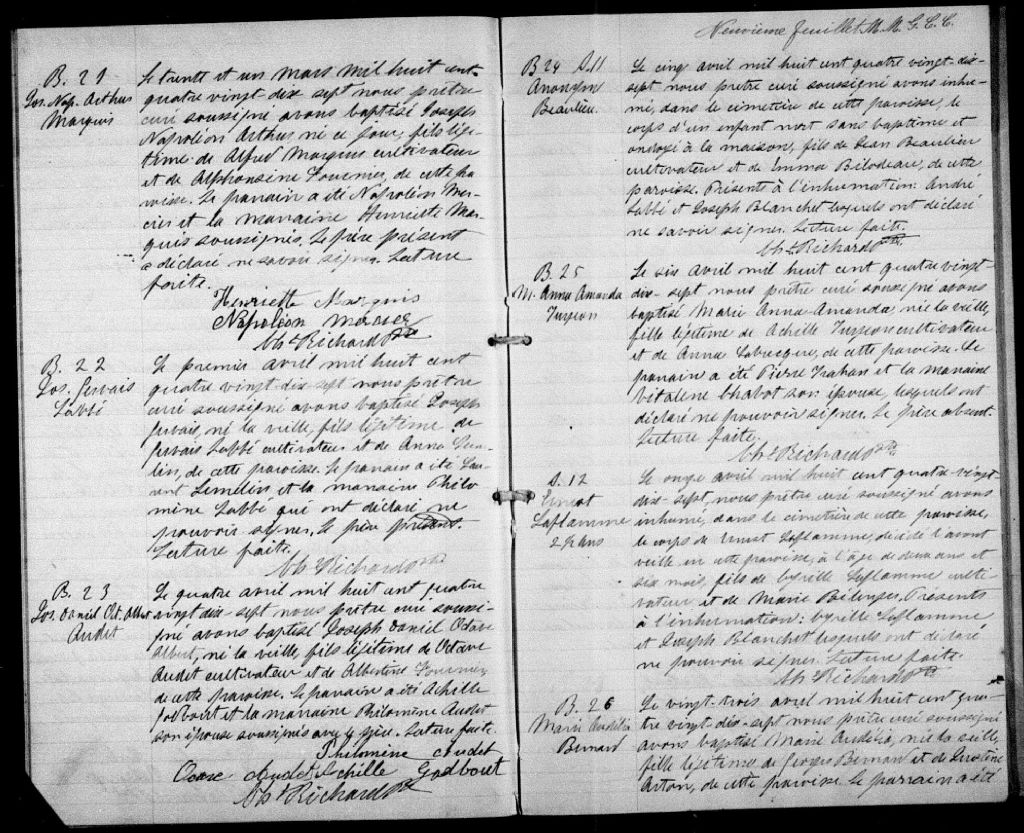 B. 21
Jos. Nap. Arthur
Marquis
Le trente et un mars mil huit cent
quatre vingt dix sept nous prêtre
curé soussigné avons baptisé Joseph
Napoléon Arthur né ce jour, fils légi-
time de Alfred Marquis cultivateur
et de Alphonsine Fournier, de cette pa-
roisse. Le parrain a été Napoléon Mer-
cier et la marraine Henriette Mar-
quis soussignés. Le père présent
a déclaré ne savoir signer. Lecture
faite.
Henriette Marquis
Napoléon Mercier
Chs Richard Ptre
B. 22
Jos. Gervais
Labbé
Le premier avril mil huit cent
quatre vingt-dix-sept nous prêtre
curé soussigné avons baptisé Joseph
Gervais, né la veille, fils légitime de
Gervais Labbé cultivateur et de Anna Leme-
lin, de cette paroisse. Le parrain a été Lau-
rent Lemelin, et la marraine Philo
mène Labbé qui ont déclaré, ne
pouvoir signer. Le père présent.
Lecture faite.
Chs Richard Ptre
B. 23
Jos. Daniel Oct. Albert
Audet
Le quatre avril mil huit cent quatre
vingt dix-sept nous prêtre curé soussi-
gné avons baptisé Joseph Daniel Octave
Albert, né la veille, fils légitime de Octave
Audet cultivateur et de Albertine Fournier,
de cette paroisse. Le parrain a été Achille
Godbout et la marraine Philomène Audet
son épouse soussignés avec le père. Lecture faite.
Philomène Audet
Audet Achille Godbout
Chs Richard Ptre
Neuvième feuillet M. M. G. C. C.
B 24 S. 11
Anonyme
Beaulieu
Le cinq avril mil huit cent quatre vingt-dix-
sept nous prêtre curé soussigné avons inhu-
mé, dans le cimetière de cette paroisse, le
corps d'un enfant mort sans baptême et
ondoyé à la maison, fils de Jean Beaulieu
cultivateur et de Emma Bilodeau, de cette
paroisse. Présents à l'inhumation: André
Labbé et Joseph Blanchet lesquels ont déclaré
ne savoir signer. Lecture faite.
Chs Richard Ptre
B. 25
M. Anna Amanda
Turgeon
Le six avril mil huit cent quatre vingt-
dix-sept nous prêtre curé soussigné avons
baptisé Marie Anna-Amanda, née la veille,
fille légitime de Achille Turgeon cultivateur
et de Anna Labrecque, de cette paroisse. Le
parrain a été Pierre Trahan et la marraine
Vitaline Chabot son épouse, lesquels ont
déclaré ne pouvoir signer. Le père absent.
Lecture faite.
Chs Richard Ptre
S. 12
Ernest
Laflamme
2½ ans
Le onze avril mil huit cent quatre-vingt-
dix-sept, nous prêtre curé soussigné avons
inhumé, dans le cimetière de cette paroisse,
le corps de Ernest Laflamme, décédé l'avant
veille en cette paroisse, à l'âge de deux ans et
six mois, fils de Cyrille Laflamme culti-
vateur et de Marie Bélanger. Présents
à l'inhumation: Cyrille Laflamme
et Joseph Blanchet lesquels ont déclaré
ne pouvoir signer. Lecture faite.
Chs Richard Ptre
B. 26
Marie
Bernard
Le vingt-trois avril mil huit cent qua-
tre vingt-dix-sept nous prêtre curé soussigné
avons baptisé Marie née la veille,
fille légitime de Georges Bernard et de
de cette paroisse. Le parrain a été